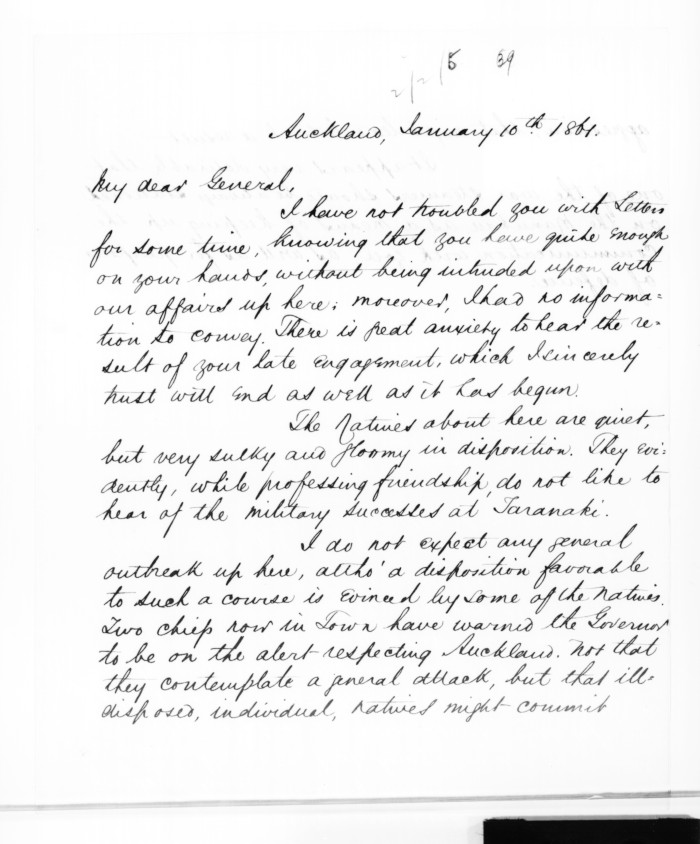 5 39
Auckland, January 10th 1861.
My dear General,
I have not troubled you with Letters
for some time, knowing that you have quite enough
on your hands, without being intruded upon with
our affairs up here; moreover, I had no informa=
tion to convey. There is great anxiety to hear the re=
sult of your late engagement, which I sincerely
trust will end as well as it has begun.
The Natives about here are quiet,
but very sulky and gloomy in disposition. They evi=
dently, while professing friendship, do not like to
hear of the military successes at Taranaki.
I do not expect any general
outbreak up here, altho' a disposition favorable
to such a course is evinced by some of the Natives.
Two chiefs now in Town have warned the Governor
to be on the alert respecting Auckland. Not that
they contemplate a general attack, but that ill=
disposed, individual, Natives might commit